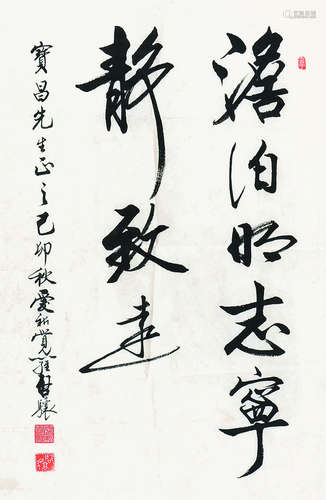 澹泊明志寧
靜致遠
寶昌先生正之己卯秋愛新覺羅啓驤